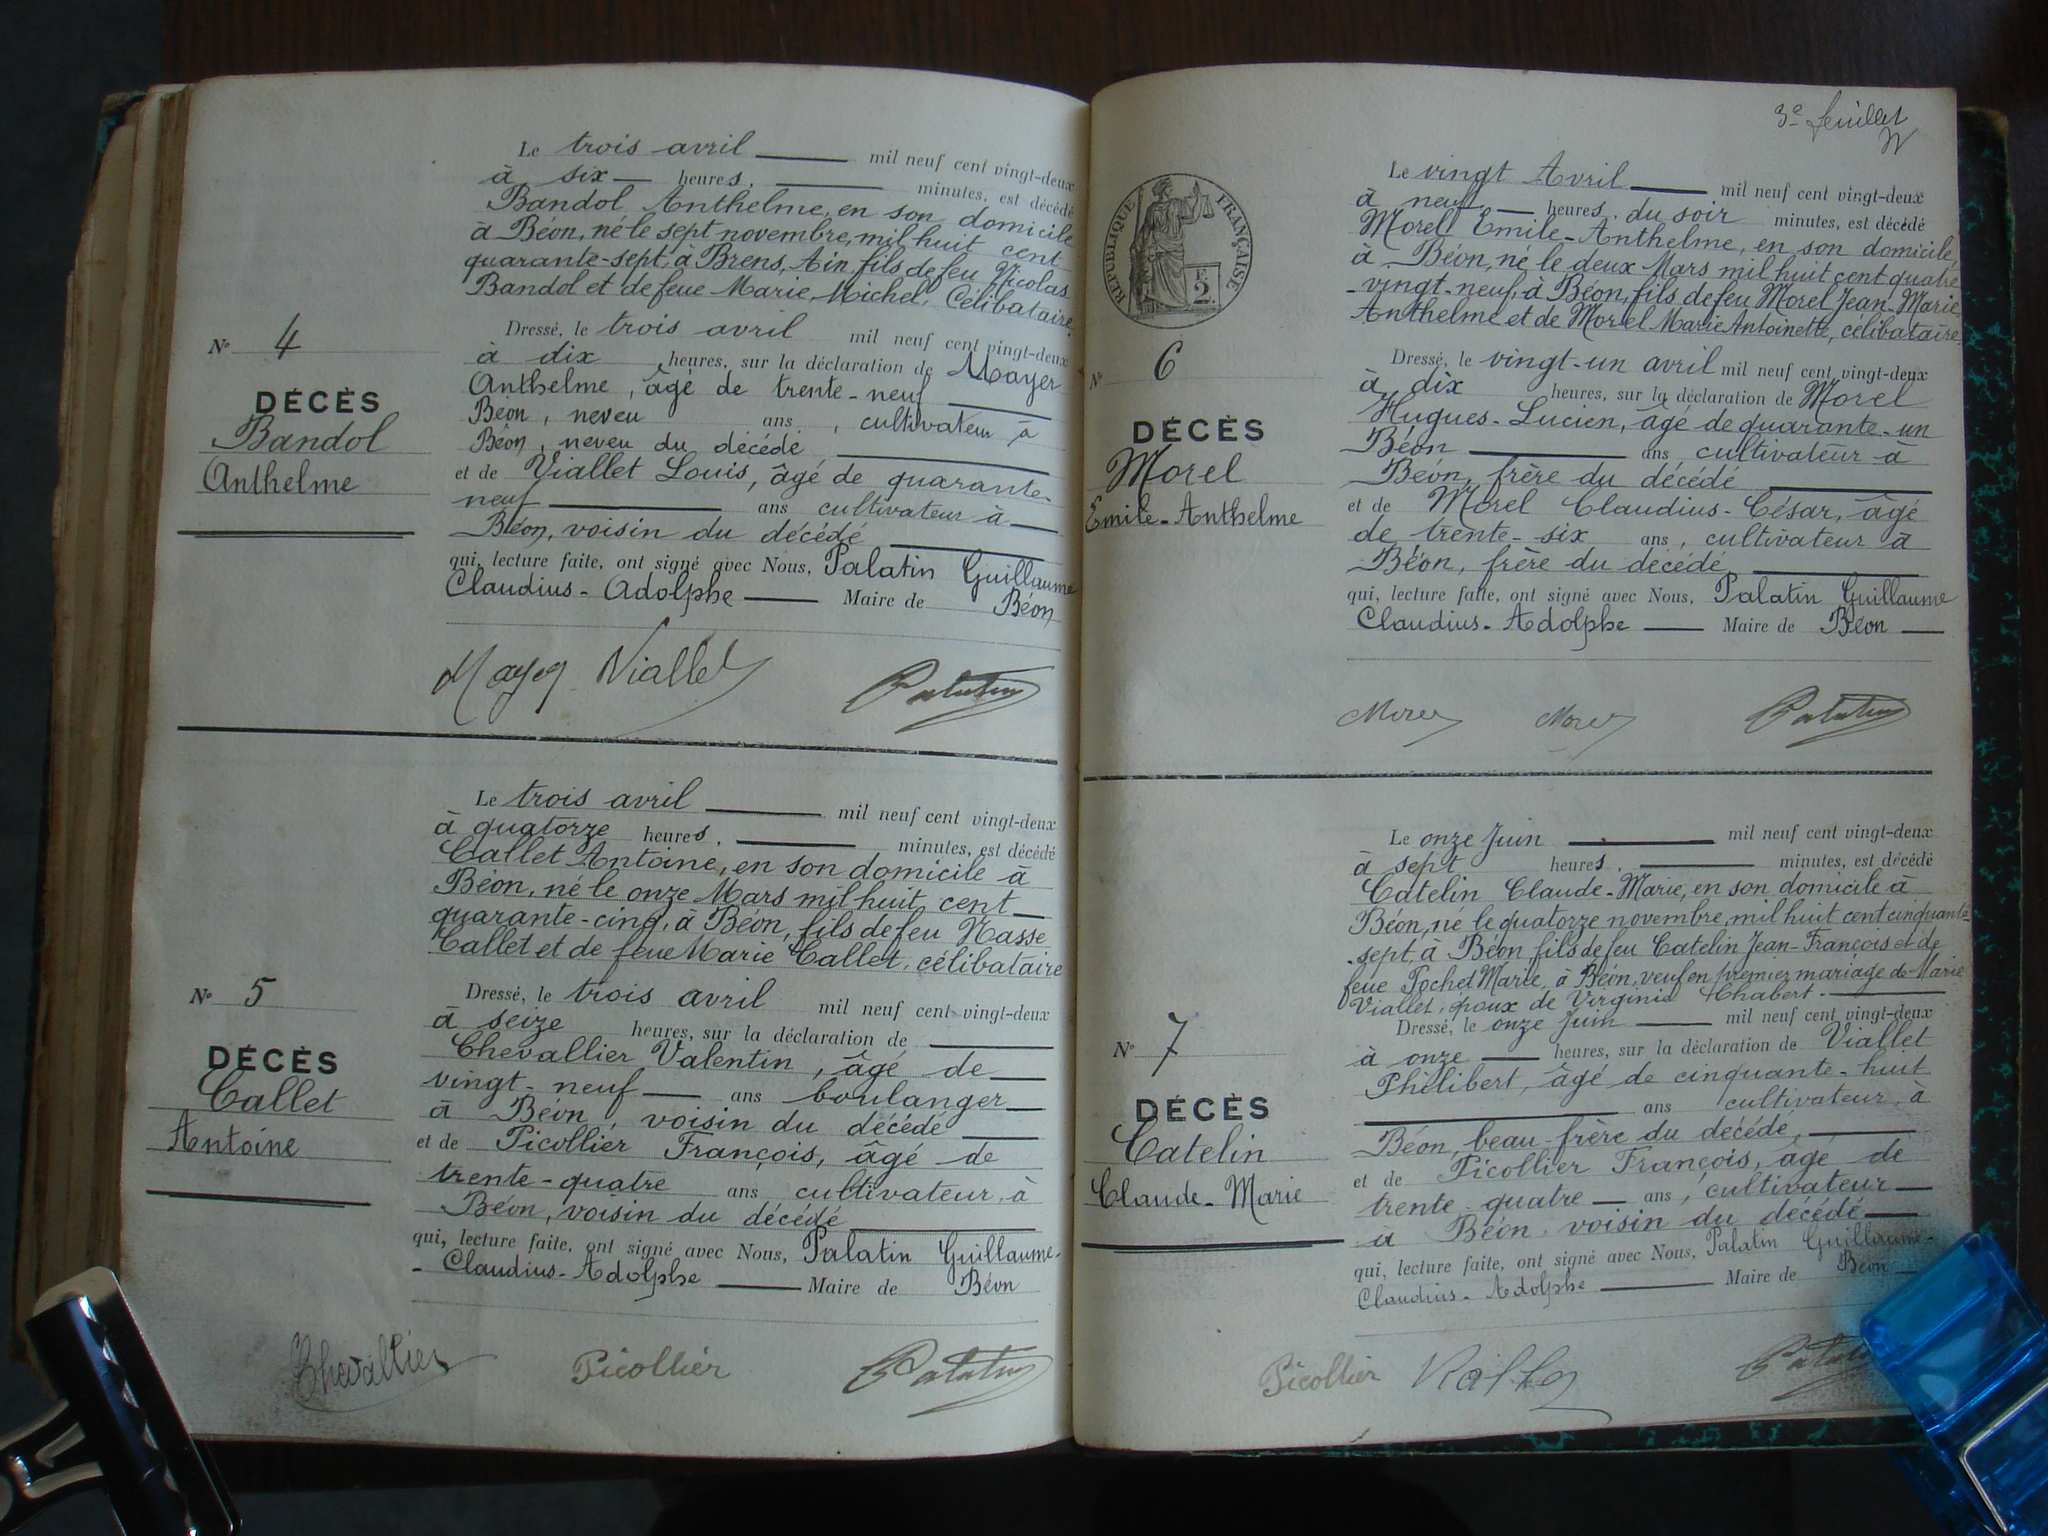 Le trois avril mil neuf cent vingt-deux
à six heures, minutes, est décédé
Bandol Anthelme, en son domicile
à Béon, né le sept novembre, mil huit cent
quarante-sept, à Brens, Ain, fils de feu Nicolas
Bandol et de feue Marie Michel, Célibataire
Dressé, le trois avril mil neuf cent vingt-deux
à dix heures, sur la déclaration de Mayer
Anthelme, âgé de trente-neuf
Béon, neveu ans, cultivateur à
Béon, neveu du décédé
et de Viallet Louis, âgé de quarante-
neuf ans cultivateur à
Béon, voisin du décédé
qui, lecture faite, ont signé avec Nous, Palatin Guillaume
Claudius-Adolphe Maire de Béon
N° 4
DÉCÈS
Bandol
Anthelme
Mayer Viallet Palatin
Le trois avril mil neuf cent vingt-deux
à quatorze heures, minutes, est décédé
Callet Antoine, en son domicile à
Béon, né le onze Mars mil huit cent
quarante-cinq, à Béon, fils de feu Nasse
Callet et de feue Marie Callet, célibataire
Dressé, le trois avril mil neuf cent vingt-deux
à seize heures, sur la déclaration de
Chevallier Valentin, âgé de
vingt-neuf ans boulanger
à Béon, voisin du décédé
et de Picollier François, âgé de
trente-quatre ans cultivateur, à
Béon, voisin du décédé
qui, lecture faite, ont signé avec Nous, Palatin Guillaume-
- Claudius-Adolphe Maire de Béon
N° 5
DÉCÈS
Callet
Antoine
Chevallier Picollier Palatin
3e feuillet
RÉPUBLIQUE FRANÇAISE
F.
2
Le vingt Avril mil neuf cent vingt-deux
à neuf heures, du soir minutes, est décédé
Morel Emile-Anthelme, en son domicile,
à Béon, né le deux Mars mil huit cent quatre
-vingt-neuf, à Béon, fils de feu Morel Jean-Marie
Anthelme et de Morel Marie Antoinette, célibataire.
Dressé, le vingt-un avril mil neuf cent vingt-deux
à dix heures, sur la déclaration de Morel
Hugues-Lucien, âgé de quarante-un
Béon ans, cultivateur à
Béon, frère du décédé
et de Morel Claudius-César, âgé
de trente-six ans, cultivateur à
Béon, frère du décédé
qui, lecture faite, ont signé avec Nous, Palatin Guillaume
Claudius-Adolphe Maire de Béon
N° 6
DÉCÈS
Morel
Emile-Anthelme
Morel Morel Palatin
Le onze Juin mil neuf cent vingt-deux
à sept heures, minutes, est décédé
Catelin Claude-Marie, en son domicile à
Béon, né le quatorze novembre, mil huit cent cinquante-
-sept, à Béon fils de feu Catelin Jean-François et de
feue Pochet Marie, à Béon, veuf en premier mariage de Marie
Viallet, époux de Virginie Chabert.
Dressé, le onze Juin mil neuf cent vingt-deux
à onze heures, sur la déclaration de Viallet
Philibert, âgé de cinquante-huit
ans cultivateur, à
Béon, beau-frère du décédé,
et de Picollier François, âgé de
trente-quatre ans, cultivateur
à Béon, voisin du décédé
qui, lecture faite, ont signé avec Nous, Palatin Guillaume-
Claudius-Adolphe Maire de Béon
N° 7
DÉCÈS
Catelin
Claude-Marie
Picollier Palatin